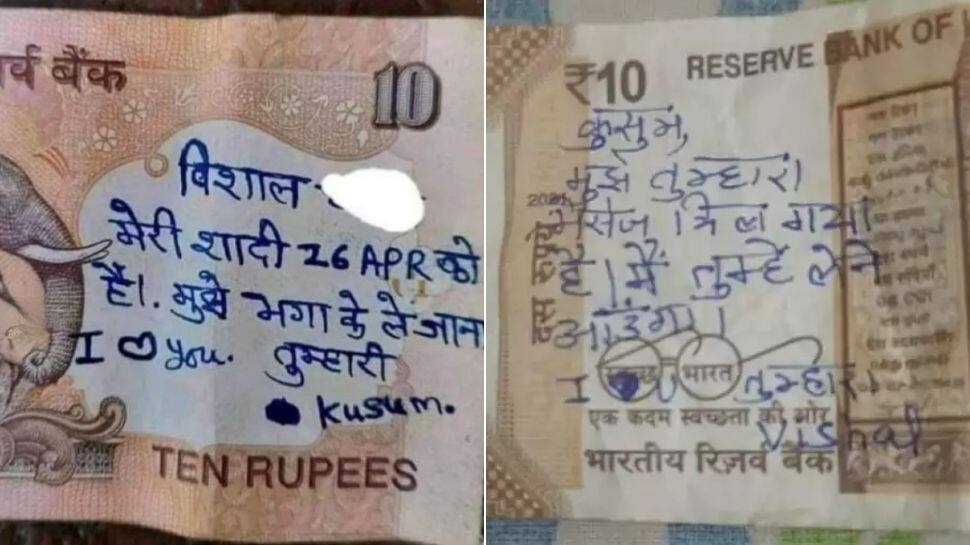 र्व बैंक
10
विशाल
मेरी शादी 26 APR को
है। मुझे भगा के ले जाना
I you. तुम्हारी
Kusum.
TEN RUPEES
₹10
RESERVE BANK OF
कुसुम,
मुझे तुम्हारा
मेसेज मिल गया
है। मैं तुम्हें लेने
आउंगा।
I U तुम्हारा
Vishal
दस रुपये
स्वच्छ भारत
एक कदम स्वच्छता की ओर
भारतीय रिज़र्व बैंक